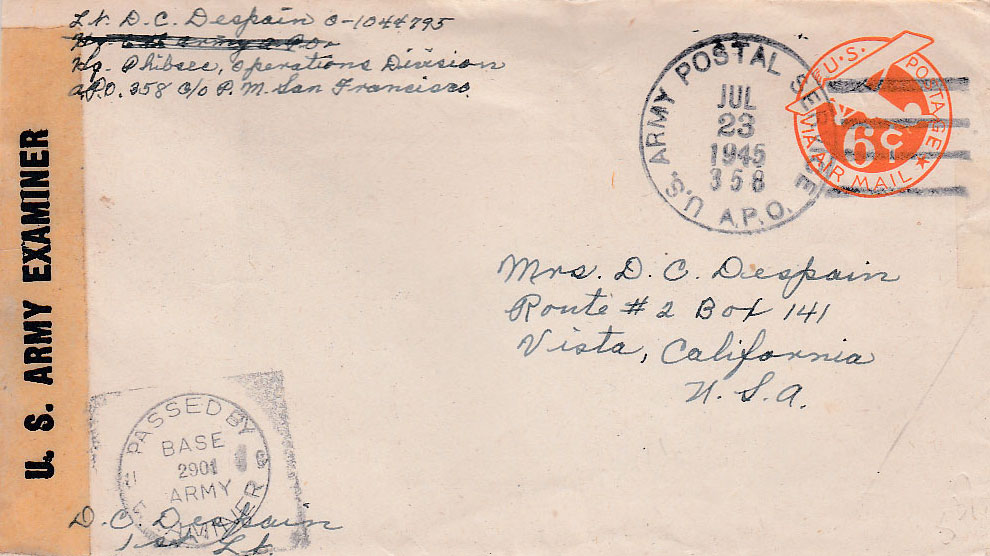 Lt. D. C. Despain O-1044795
Hq. Philsec, Operations Division
A.P.O. 358 c/o P. M. San Francisco.
U. S. ARMY EXAMINER
U.S. ARMY POSTAL SERVICE
JUL
23
1945
358
A.P.O.
U.S. POSTAGE
6¢
VIA AIR MAIL
Mrs. D. C. Despain
Route # 2 Box 141
Vista, California
U. S. A.
PASSED BY
BASE
2901
ARMY
EXAMINER
D. C. Despain
1st Lt.